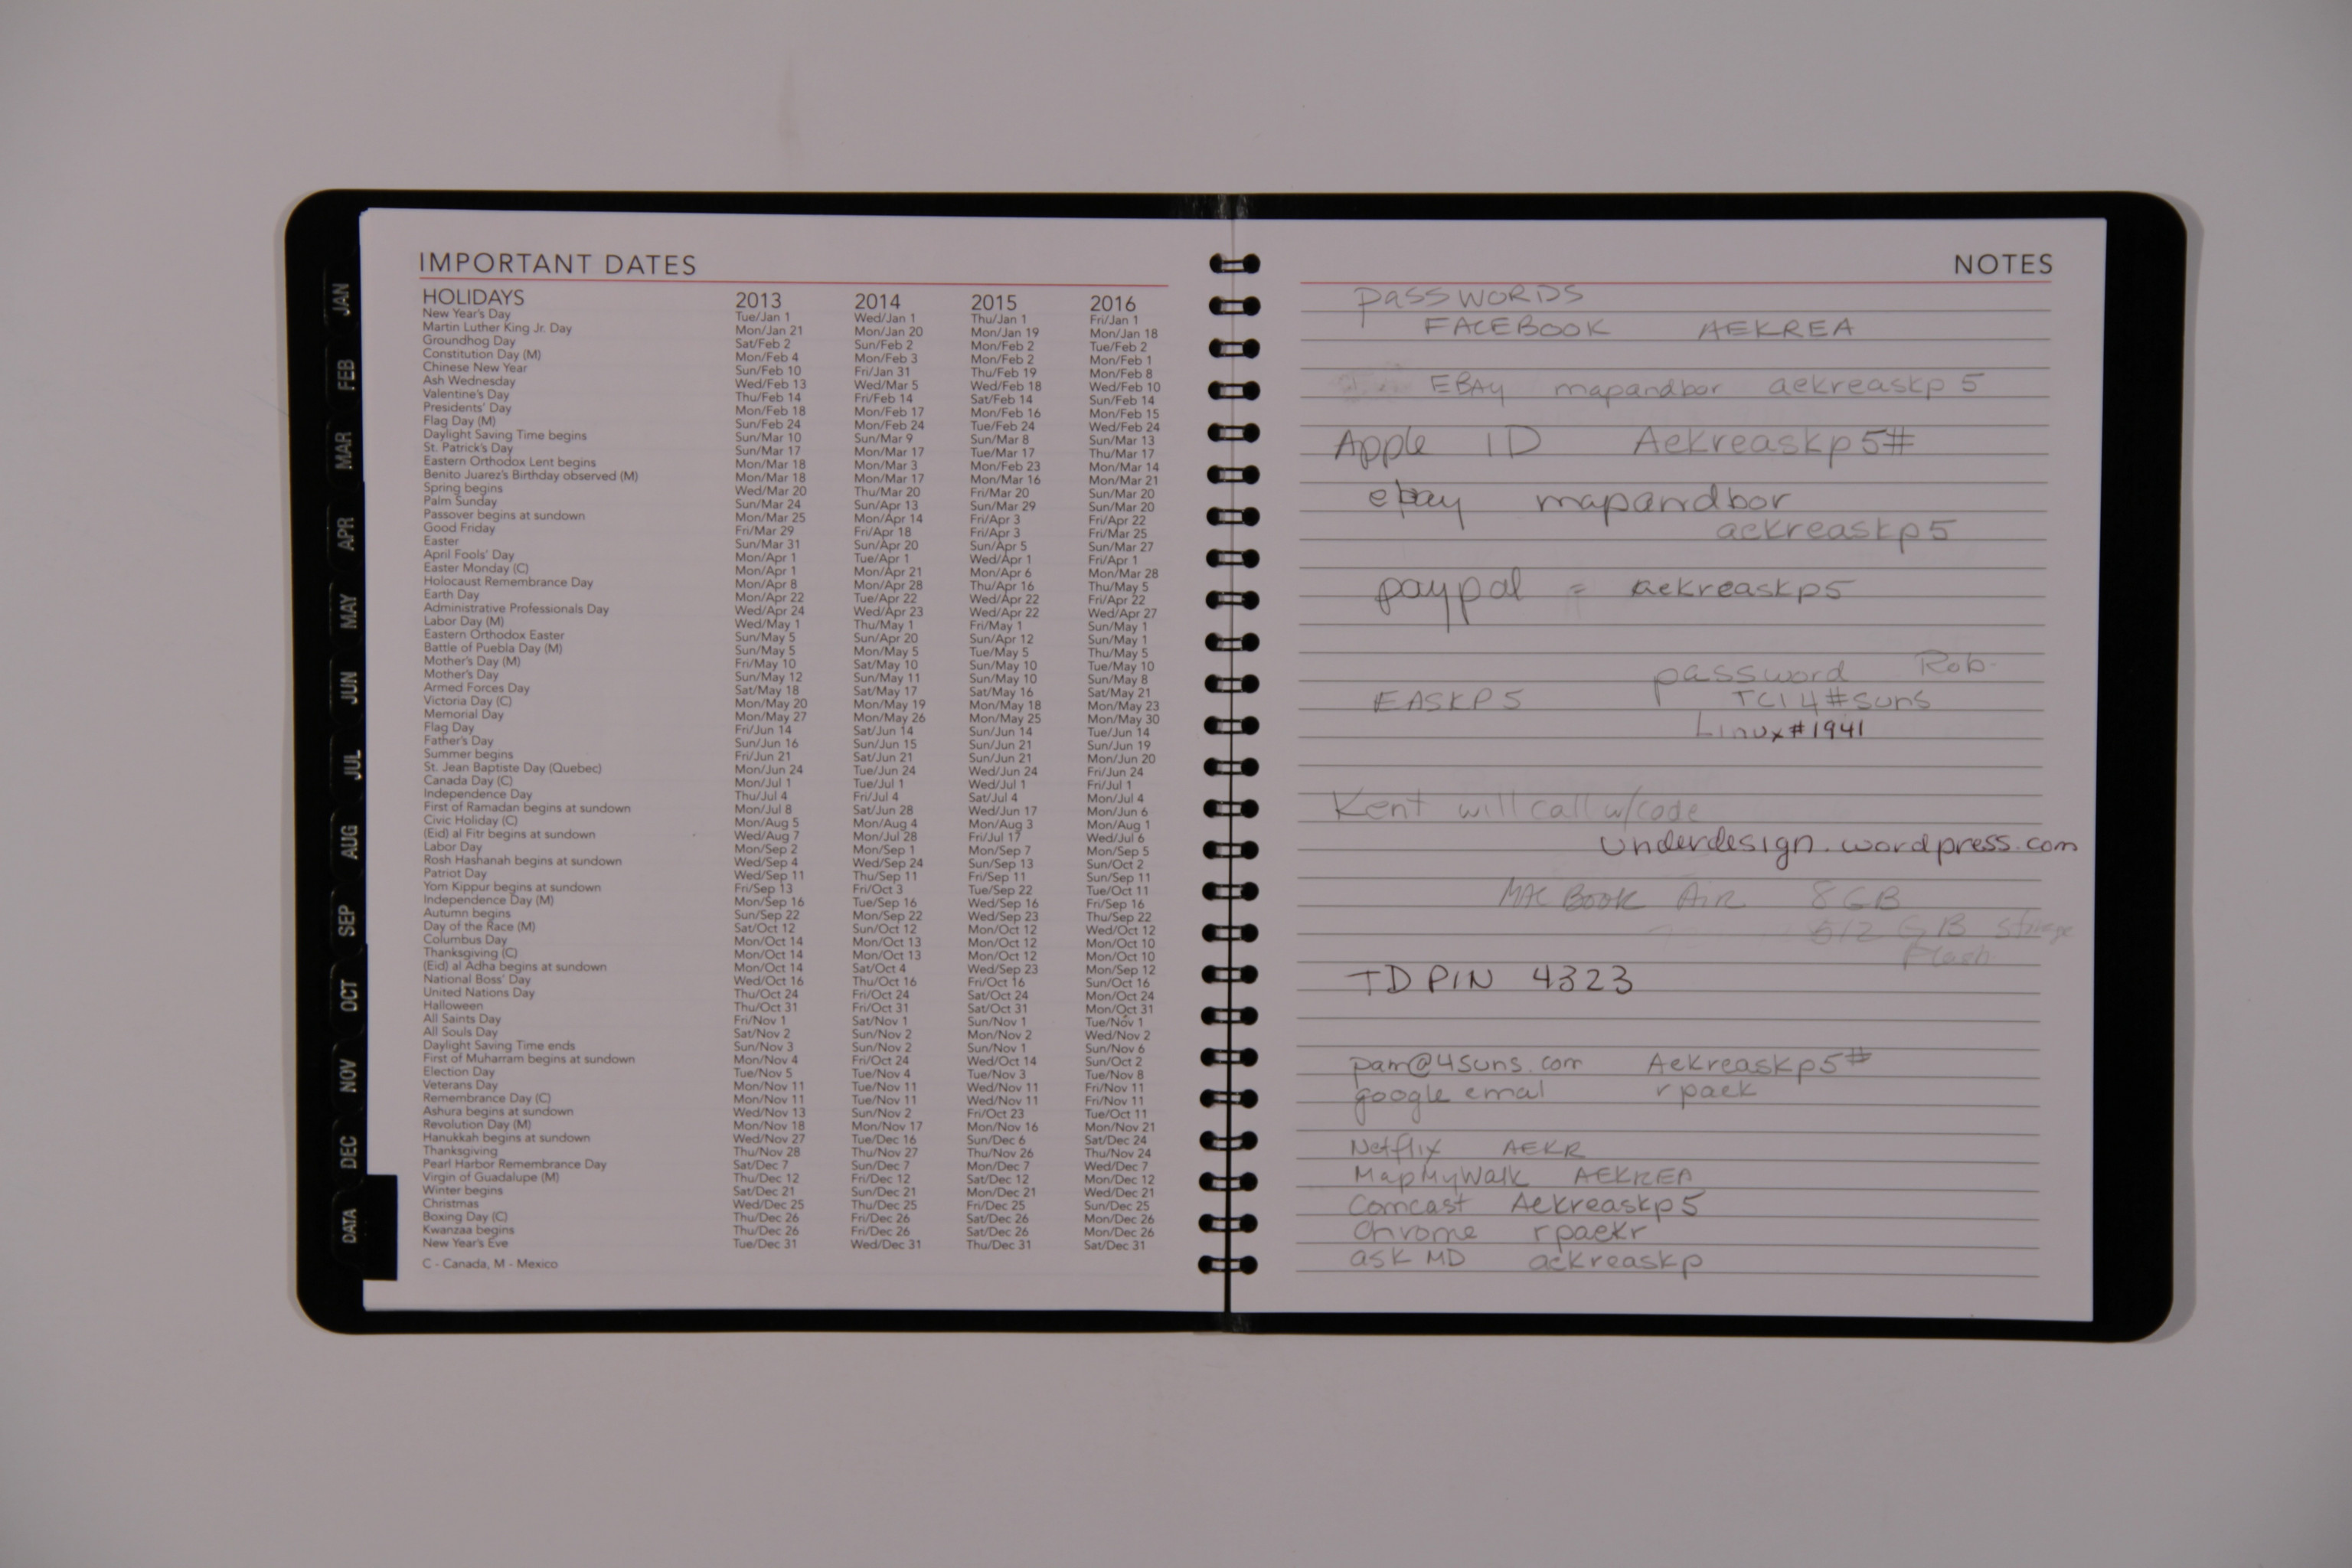 IMPORTANT DATES
HOLIDAYS 2013 2014 2015 2016
New Year's Day Tue/Jan 1 Wed/Jan 1 Thu/Jan 1 Fri/Jan 1
Martin Luther King Jr. Day Mon/Jan 21 Mon/Jan 20 Mon/Jan 19 Mon/Jan 18
Groundhog Day Sat/Feb 2 Sun/Feb 2 Mon/Feb 2 Tue/Feb 2
Constitution Day (M) Mon/Feb 4 Mon/Feb 3 Mon/Feb 2 Mon/Feb 1
Chinese New Year Sun/Feb 10 Fri/Jan 31 Thu/Feb 19 Mon/Feb 8
Ash Wednesday Wed/Feb 13 Wed/Mar 5 Wed/Feb 18 Wed/Feb 10
Valentine's Day Thu/Feb 14 Fri/Feb 14 Sat/Feb 14 Sun/Feb 14
Presidents' Day Mon/Feb 18 Mon/Feb 17 Mon/Feb 16 Mon/Feb 15
Flag Day (M) Sun/Feb 24 Mon/Feb 24 Tue/Feb 24 Wed/Feb 24
Daylight Saving Time begins Sun/Mar 10 Sun/Mar 9 Sun/Mar 8 Sun/Mar 13
St. Patrick's Day Sun/Mar 17 Mon/Mar 17 Tue/Mar 17 Thu/Mar 17
Eastern Orthodox Lent begins Mon/Mar 18 Mon/Mar 3 Mon/Feb 23 Mon/Mar 14
Benito Juarez's Birthday observed (M) Mon/Mar 18 Mon/Mar 17 Mon/Mar 16 Mon/Mar 21
Spring begins Wed/Mar 20 Thu/Mar 20 Fri/Mar 20 Sun/Mar 20
Palm Sunday Sun/Mar 24 Sun/Apr 13 Sun/Mar 29 Sun/Mar 20
Passover begins at sundown Mon/Mar 25 Mon/Apr 14 Fri/Apr 3 Fri/Apr 22
Good Friday Fri/Mar 29 Fri/Apr 18 Fri/Apr 3 Fri/Mar 25
Easter Sun/Mar 31 Sun/Apr 20 Sun/Apr 5 Sun/Mar 27
April Fools' Day Mon/Apr 1 Tue/Apr 1 Wed/Apr 1 Fri/Apr 1
Easter Monday (C) Mon/Apr 1 Mon/Apr 21 Mon/Apr 6 Mon/Mar 28
Holocaust Remembrance Day Mon/Apr 8 Mon/Apr 28 Thu/Apr 16 Thu/May 5
Earth Day Mon/Apr 22 Tue/Apr 22 Wed/Apr 22 Fri/Apr 22
Administrative Professionals Day Wed/Apr 24 Wed/Apr 23 Wed/Apr 22 Wed/Apr 27
Labor Day (M) Wed/May 1 Thu/May 1 Fri/May 1 Sun/May 1
Eastern Orthodox Easter Sun/May 5 Sun/Apr 20 Sun/Apr 12 Sun/May 1
Battle of Puebla Day (M) Sun/May 5 Mon/May 5 Tue/May 5 Thu/May 5
Mother's Day (M) Fri/May 10 Sat/May 10 Sun/May 10 Tue/May 10
Mother's Day Sun/May 12 Sun/May 11 Sun/May 10 Sun/May 8
Armed Forces Day Sat/May 18 Sat/May 17 Sat/May 16 Sat/May 21
Victoria Day (C) Mon/May 20 Mon/May 19 Mon/May 18 Mon/May 23
Memorial Day Mon/May 27 Mon/May 26 Mon/May 25 Mon/May 30
Flag Day Fri/Jun 14 Sat/Jun 14 Sun/Jun 14 Tue/Jun 14
Father's Day Sun/Jun 16 Sun/Jun 15 Sun/Jun 21 Sun/Jun 19
Summer begins Fri/Jun 21 Sat/Jun 21 Sun/Jun 21 Mon/Jun 20
St. Jean Baptiste Day (Quebec) Mon/Jun 24 Tue/Jun 24 Wed/Jun 24 Fri/Jun 24
Canada Day (C) Mon/Jul 1 Tue/Jul 1 Wed/Jul 1 Fri/Jul 1
Independence Day Thu/Jul 4 Fri/Jul 4 Sat/Jul 4 Mon/Jul 4
First of Ramadan begins at sundown Mon/Jul 8 Sat/Jun 28 Wed/Jun 17 Mon/Jun 6
Civic Holiday (C) Mon/Aug 5 Mon/Aug 4 Mon/Aug 3 Mon/Aug 1
(Eid) al Fitr begins at sundown Wed/Aug 7 Mon/Jul 28 Fri/Jul 17 Wed/Jul 6
Labor Day Mon/Sep 2 Mon/Sep 1 Mon/Sep 7 Mon/Sep 5
Rosh Hashanah begins at sundown Wed/Sep 4 Wed/Sep 24 Sun/Sep 13 Sun/Oct 2
Patriot Day Wed/Sep 11 Thu/Sep 11 Fri/Sep 11 Sun/Sep 11
Yom Kippur begins at sundown Fri/Sep 13 Fri/Oct 3 Tue/Sep 22 Tue/Oct 11
Independence Day (M) Mon/Sep 16 Tue/Sep 16 Wed/Sep 16 Fri/Sep 16
Autumn begins Sun/Sep 22 Mon/Sep 22 Wed/Sep 23 Thu/Sep 22
Day of the Race (M) Sat/Oct 12 Sun/Oct 12 Mon/Oct 12 Wed/Oct 12
Columbus Day Mon/Oct 14 Mon/Oct 13 Mon/Oct 12 Mon/Oct 10
Thanksgiving (C) Mon/Oct 14 Mon/Oct 13 Mon/Oct 12 Mon/Oct 10
(Eid) al Adha begins at sundown Mon/Oct 14 Sat/Oct 4 Wed/Sep 23 Mon/Sep 12
National Boss' Day Wed/Oct 16 Thu/Oct 16 Fri/Oct 16 Sun/Oct 16
United Nations Day Thu/Oct 24 Fri/Oct 24 Sat/Oct 24 Mon/Oct 24
Halloween Thu/Oct 31 Fri/Oct 31 Sat/Oct 31 Mon/Oct 31
All Saints Day Fri/Nov 1 Sat/Nov 1 Sun/Nov 1 Tue/Nov 1
All Souls Day Sat/Nov 2 Sun/Nov 2 Mon/Nov 2 Wed/Nov 2
Daylight Saving Time ends Sun/Nov 3 Sun/Nov 2 Sun/Nov 1 Sun/Nov 6
First of Muharram begins at sundown Mon/Nov 4 Fri/Oct 24 Wed/Oct 14 Sun/Oct 2
Election Day Tue/Nov 5 Tue/Nov 4 Tue/Nov 3 Tue/Nov 8
Veterans Day Mon/Nov 11 Tue/Nov 11 Wed/Nov 11 Fri/Nov 11
Remembrance Day (C) Mon/Nov 11 Tue/Nov 11 Wed/Nov 11 Fri/Nov 11
Ashura begins at sundown Wed/Nov 13 Sun/Nov 2 Fri/Oct 23 Tue/Oct 11
Revolution Day (M) Mon/Nov 18 Mon/Nov 17 Mon/Nov 16 Mon/Nov 21
Hanukkah begins at sundown Wed/Nov 27 Tue/Dec 16 Sun/Dec 6 Sat/Dec 24
Thanksgiving Thu/Nov 28 Thu/Nov 27 Thu/Nov 26 Thu/Nov 24
Pearl Harbor Remembrance Day Sat/Dec 7 Sun/Dec 7 Mon/Dec 7 Wed/Dec 7
Virgin of Guadalupe (M) Thu/Dec 12 Fri/Dec 12 Sat/Dec 12 Mon/Dec 12
Winter begins Sat/Dec 21 Sun/Dec 21 Mon/Dec 21 Wed/Dec 21
Christmas Wed/Dec 25 Thu/Dec 25 Fri/Dec 25 Sun/Dec 25
Boxing Day (C) Thu/Dec 26 Fri/Dec 26 Sat/Dec 26 Mon/Dec 26
Kwanzaa begins Thu/Dec 26 Fri/Dec 26 Sat/Dec 26 Mon/Dec 26
New Year's Eve Tue/Dec 31 Wed/Dec 31 Thu/Dec 31 Sat/Dec 31
C - Canada, M - Mexico
JAN
FEB
MAR
APR
MAY
JUN
JUL
AUG
SEP
OCT
NOV
DEC
DATA
NOTES
PASSWORDS
FACEBOOK AEKREA
EBAY mapandbor aekreaskp5
Apple ID Aekreaskp5#
ebay mapandbor
aekreaskp5
paypal = aekreaskp5
password Rob
EASKP5 TCI4#suns
Linux#1941
Kent will call w/code
underdesign.wordpress.com
MAC BOOK AIR 8GB
512 GB storage
Flash
TD PIN 4323
pam@4suns.com Aekreaskp5#
google emal rpaek
Netflix AEKR
MapMyWalk AEKREA
Comcast Aekreaskp5
Chrome rpaekr
ask MD aekreaskp